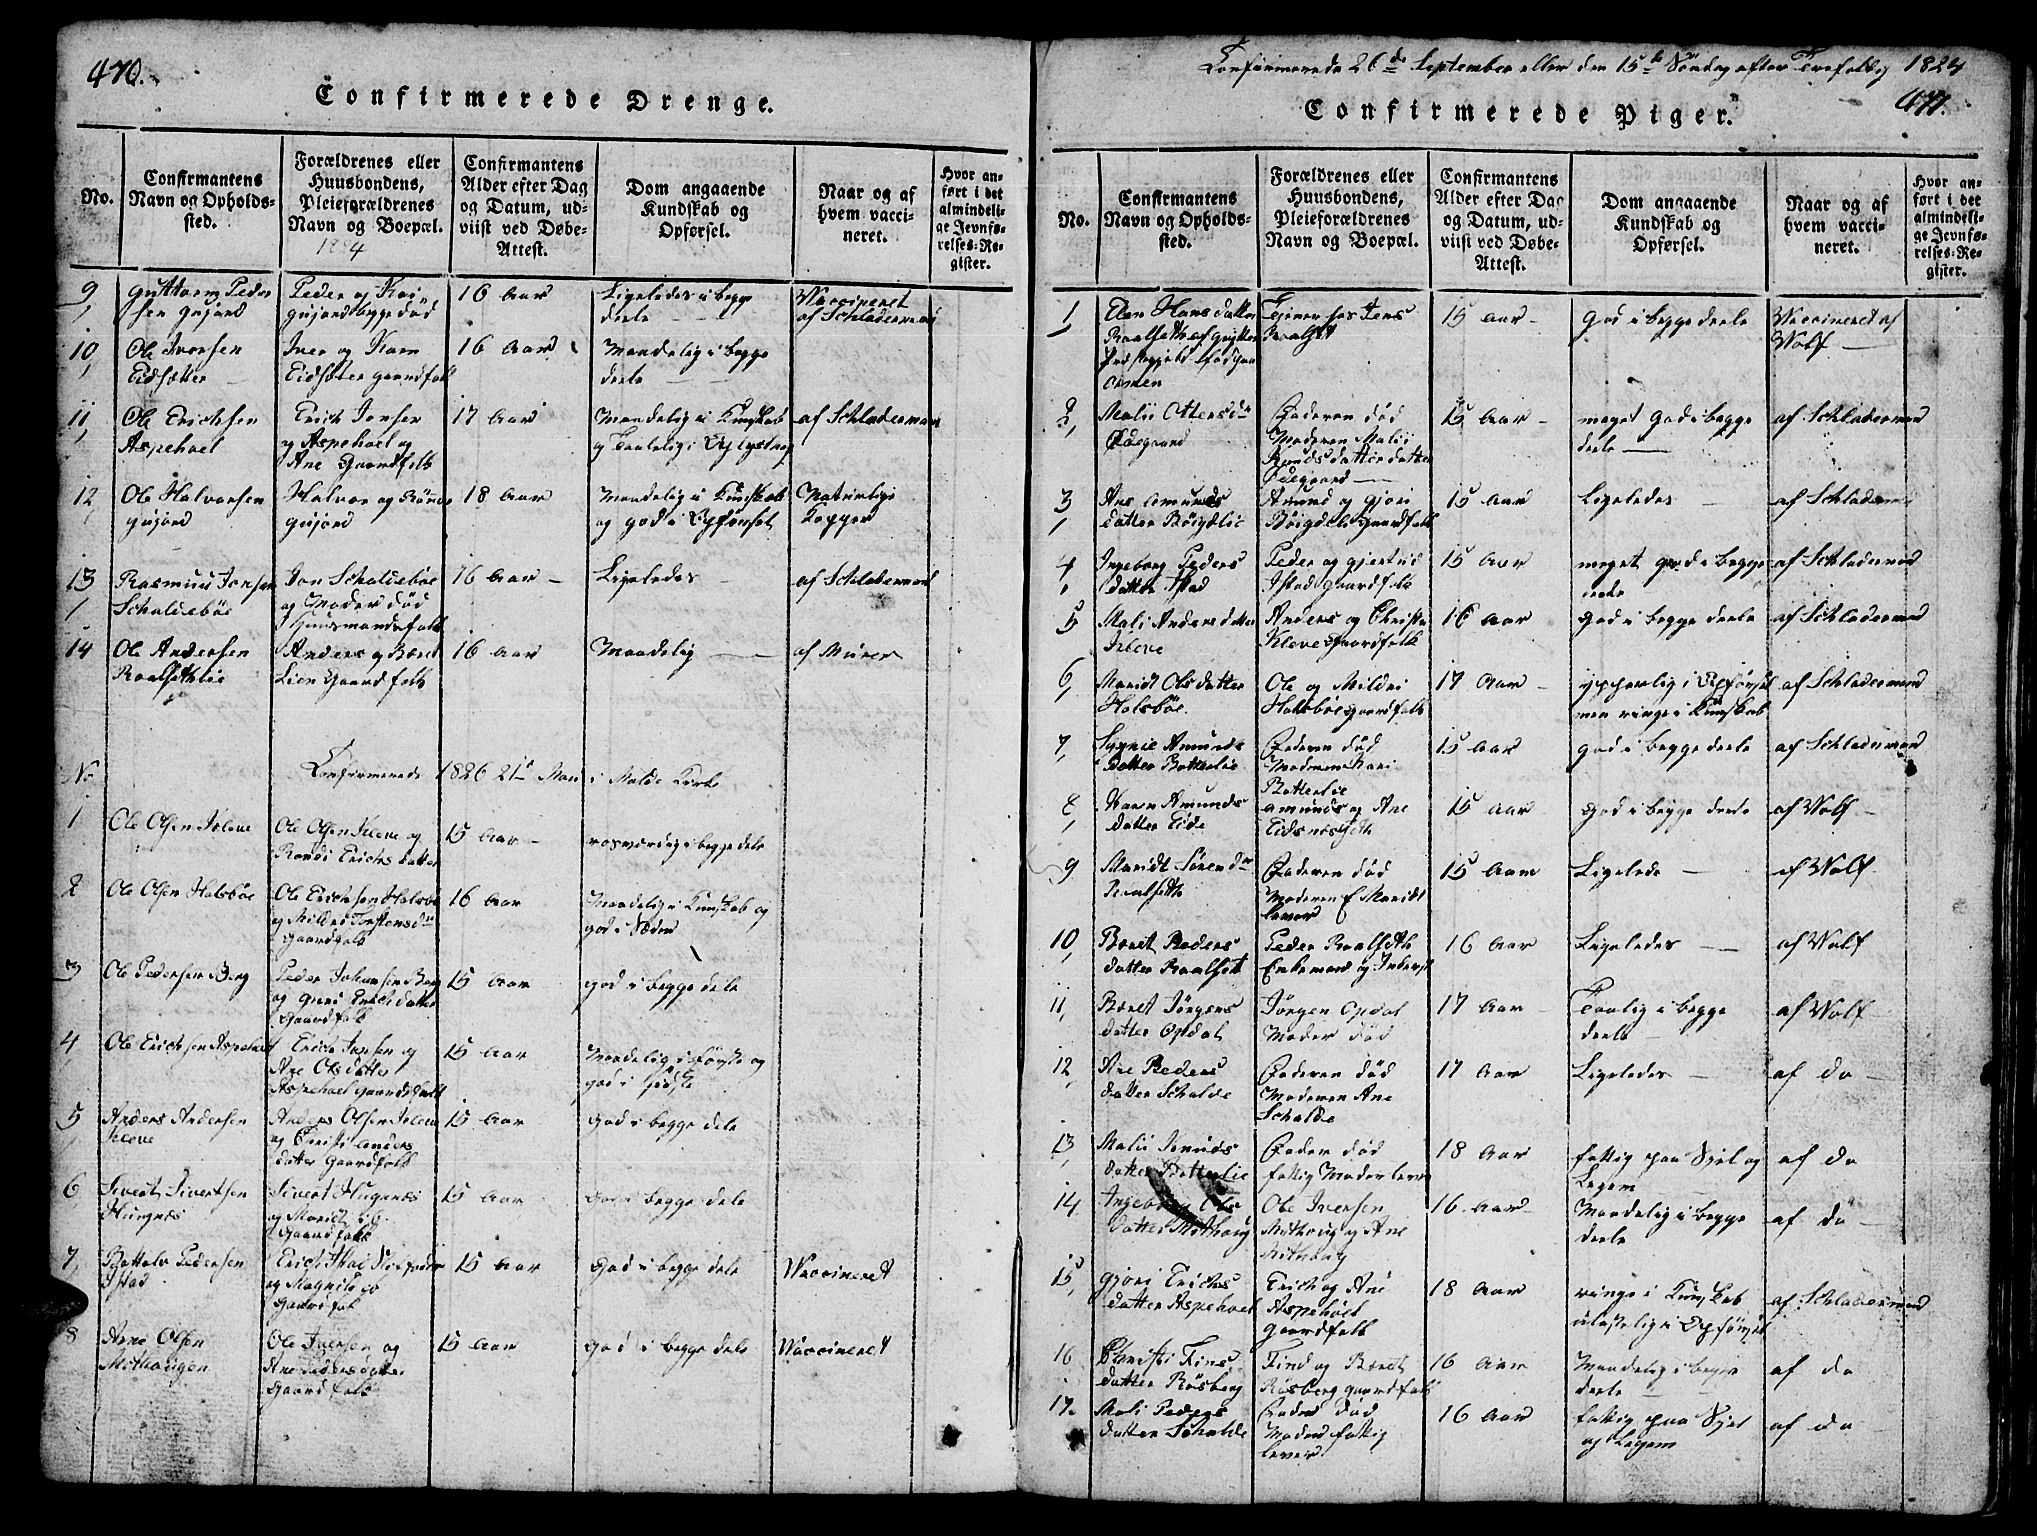 470.
Confirmerede Drenge.
No.
Confirmantens
Navn og Opholds-
sted.
Forældrenes eller
Huusbondens,
Pleieforældrenes
Navn og Boepæl.
1824
Confirmantens
Alder efter Dag
og Datum, ud-
viist ved Døbe-
Attest.
Dom angaaende
Kundskab og
Opførsel.
Naar og af
hvem vacci-
neret.
Hvor an-
ført i det
almindeli-
ge Jevnfø-
relses-Re-
gister.
9 Guttorm Peder
sen Gujord
Peder og Kari
Gujord begge død
16 Aar
Ligeledes i begge
deele
Vaccineret
af Schladermand
10 Ole Iversen
Eidsætter
Iver og Karn
Eidsæter gaardfolk
16 Aar
Maadelig i begge
deele
11 Ole Erichsen
Aspehoel
Erich Jonsen
og Aspehoel og
Ane Gaardfolk
17 Aar
Maadelig i Kundskab
og
af Schladermand
12 Ole Halvorsen
Gujord
Halvor og
Gujord
18 Aar
Maadelig i Kundskab
og god i Opførsel
Naturlige
Kopper
13 Rasmus Jonsen
Schaldebøe
Jon Schaldebøe
og Moder død
Huusmandsfolk
16 Aar
Ligeledes
af Schladermand
14 Ole Andersen
Raalsethlie
Anders og Beret
Lien Gaardfolk
16 Aar
Maadelig
af Murer
No Confirmerede 1826 21 Mai i Molde Kirke
1 Ole Olsen Kleve
Ole Olsen Kleve og
Randi Erichsdatter
15 Aar
rosværdig i begge dele
2 Ole Olsen Halsbøe
Ole Erichsen Halsbø
og Mildrid Torstensdr
Gaardfolk
16 Aar
Maadelig i Kundskab og
god i Sæder
3 Ole Pedersen Berg
Peder Johansen Berg
og Guri datter
Gaardfolk
15 Aar
god i begge dele
4 Ole Erichsen Aspehoel
Erich Jonsen og
Ane Olsdatter
Aspehoel gaardfolk
15 Aar
Maadelig i første og
god i sidste
5 Anders Andersen
Kleve
Anders Olsen Kleve
og Christi Anders
datter Gaardfolk
15 Aar
God i begge dele
6 Sivert Sivertsen
Hungnæs
Sivert Hugnæs
og Marit
Gaardfolk
15 Aar
God i begge dele
7 Botholv Pedersen
Istad
og Magnild
Gaardfolk
15 Aar
God i begge dele
Vaccineret
8 Arne Olsen
Mithougen
Ole Iversen og
Ane Pedersdatter
Gaardfolk
15 Aar
God i begge dele
Vaccineret
Confirmerede 26de September eller den 15de Søndag efter Trefoldig 1824
471.
Confirmerede Piger.
No.
Confirmantens
Navn og Opholds-
sted.
Forældrenes eller
Huusbondens,
Pleieforældrenes
Navn og Boepæl.
Confirmantens
Alder efter Dag
og Datum, ud-
viist ved Døbe-
Attest.
Dom angaaende
Kundskab og
Opførsel.
Naar og af
hvem vacci-
neret.
Hvor an-
ført i det
almindeli-
ge Jevnfø-
relses-Re-
gister.
1 Elen Hansdatter
Raalseth af Grytten
Præstegield
Tjener hos Jens
Raalset
15 Aar
God i begge deele
Vaccineret af
Wolf
2 Malii Ottersdr
Ødegaard
Faderen død
Moderen Malii
Knudsdatter
Ødegaard
15 Aar
meget god i begge
deele
af Schladermand
3 Ane Amunds
datter Bøigdelie
Amund og Gjøri
Bøigdelie Gaardfolk
15 Aar
Ligeledes
af Schladermand
4 Ingeborg Peders
datter Istad
Peder og Gjertrud
Istad Gaardfolk
15 Aar
meget god i begge
deele
af Schladermand
5 Mali Andersdatter
Kleve
Anders og Christie
Kleve gaardfolk
16 Aar
God i begge deele
af Schladermand
6 Maridt Olsdatter
Halsbøe
Ole og Mildri
Halsbøe gaardfolk
17 Aar
ypperlig i Opførsel
men ringe i Kundskab
af Schladermand
7 Synnie Amunds
datter Bottenlie
Faderen død
Moderen Kari
Bottenlie
15 Aar
god i begge deele
af Schladermand
8 Karen Amunds
datter Eide
Amund og Ane
15 Aar
God i begge deele
af Wolf
9 Maridt Sørendr
Raalseth
Faderen død
Moderen Maridt
lever
15 Aar
Ligelede
af Wolf
10 Beret Peders
datter Raalset
Peder Raalseth
Enkemand og Inderst
16 Aar
Ligeledes
af Wolf
11 Beret Jørgens
datter Opdal
Jørgen Opdal
Moder død
17 Aar
Taalig i begge
deele
af Wolf
12 Ane Peders
datter Schalde
Faderen død
Moderen Ane
Schalde
17 Aar
Ligeledes
af do
13 Malii
datter Bottenlie
Fader død
fattig Moder lever
18 Aar
fattig paa Siel og
Legem
af do
14 Ingeborg Ols
datter Mithoug
Ole Iversen
Mithoug og Ane
Mithoug
16 Aar
Maadelig i begge
deele
af do
15 Gjøri Erichs
datter Aspehoel
Erich og Ane
Aspehoel
gaardfolk
18 Aar
ringe i Kundskab
ulastelig i Opførsel
af Schladermand
16 Christi Fins
datter Røsberg
Find og Beret
Røsberg gaardfolk
16 Aar
Maadelig i begge
deele
af do
17. Mali Peders
datter Schalde
Fader død
Moder fattig
lever
16 Aar
fattig paa Siel
og Legem
af do